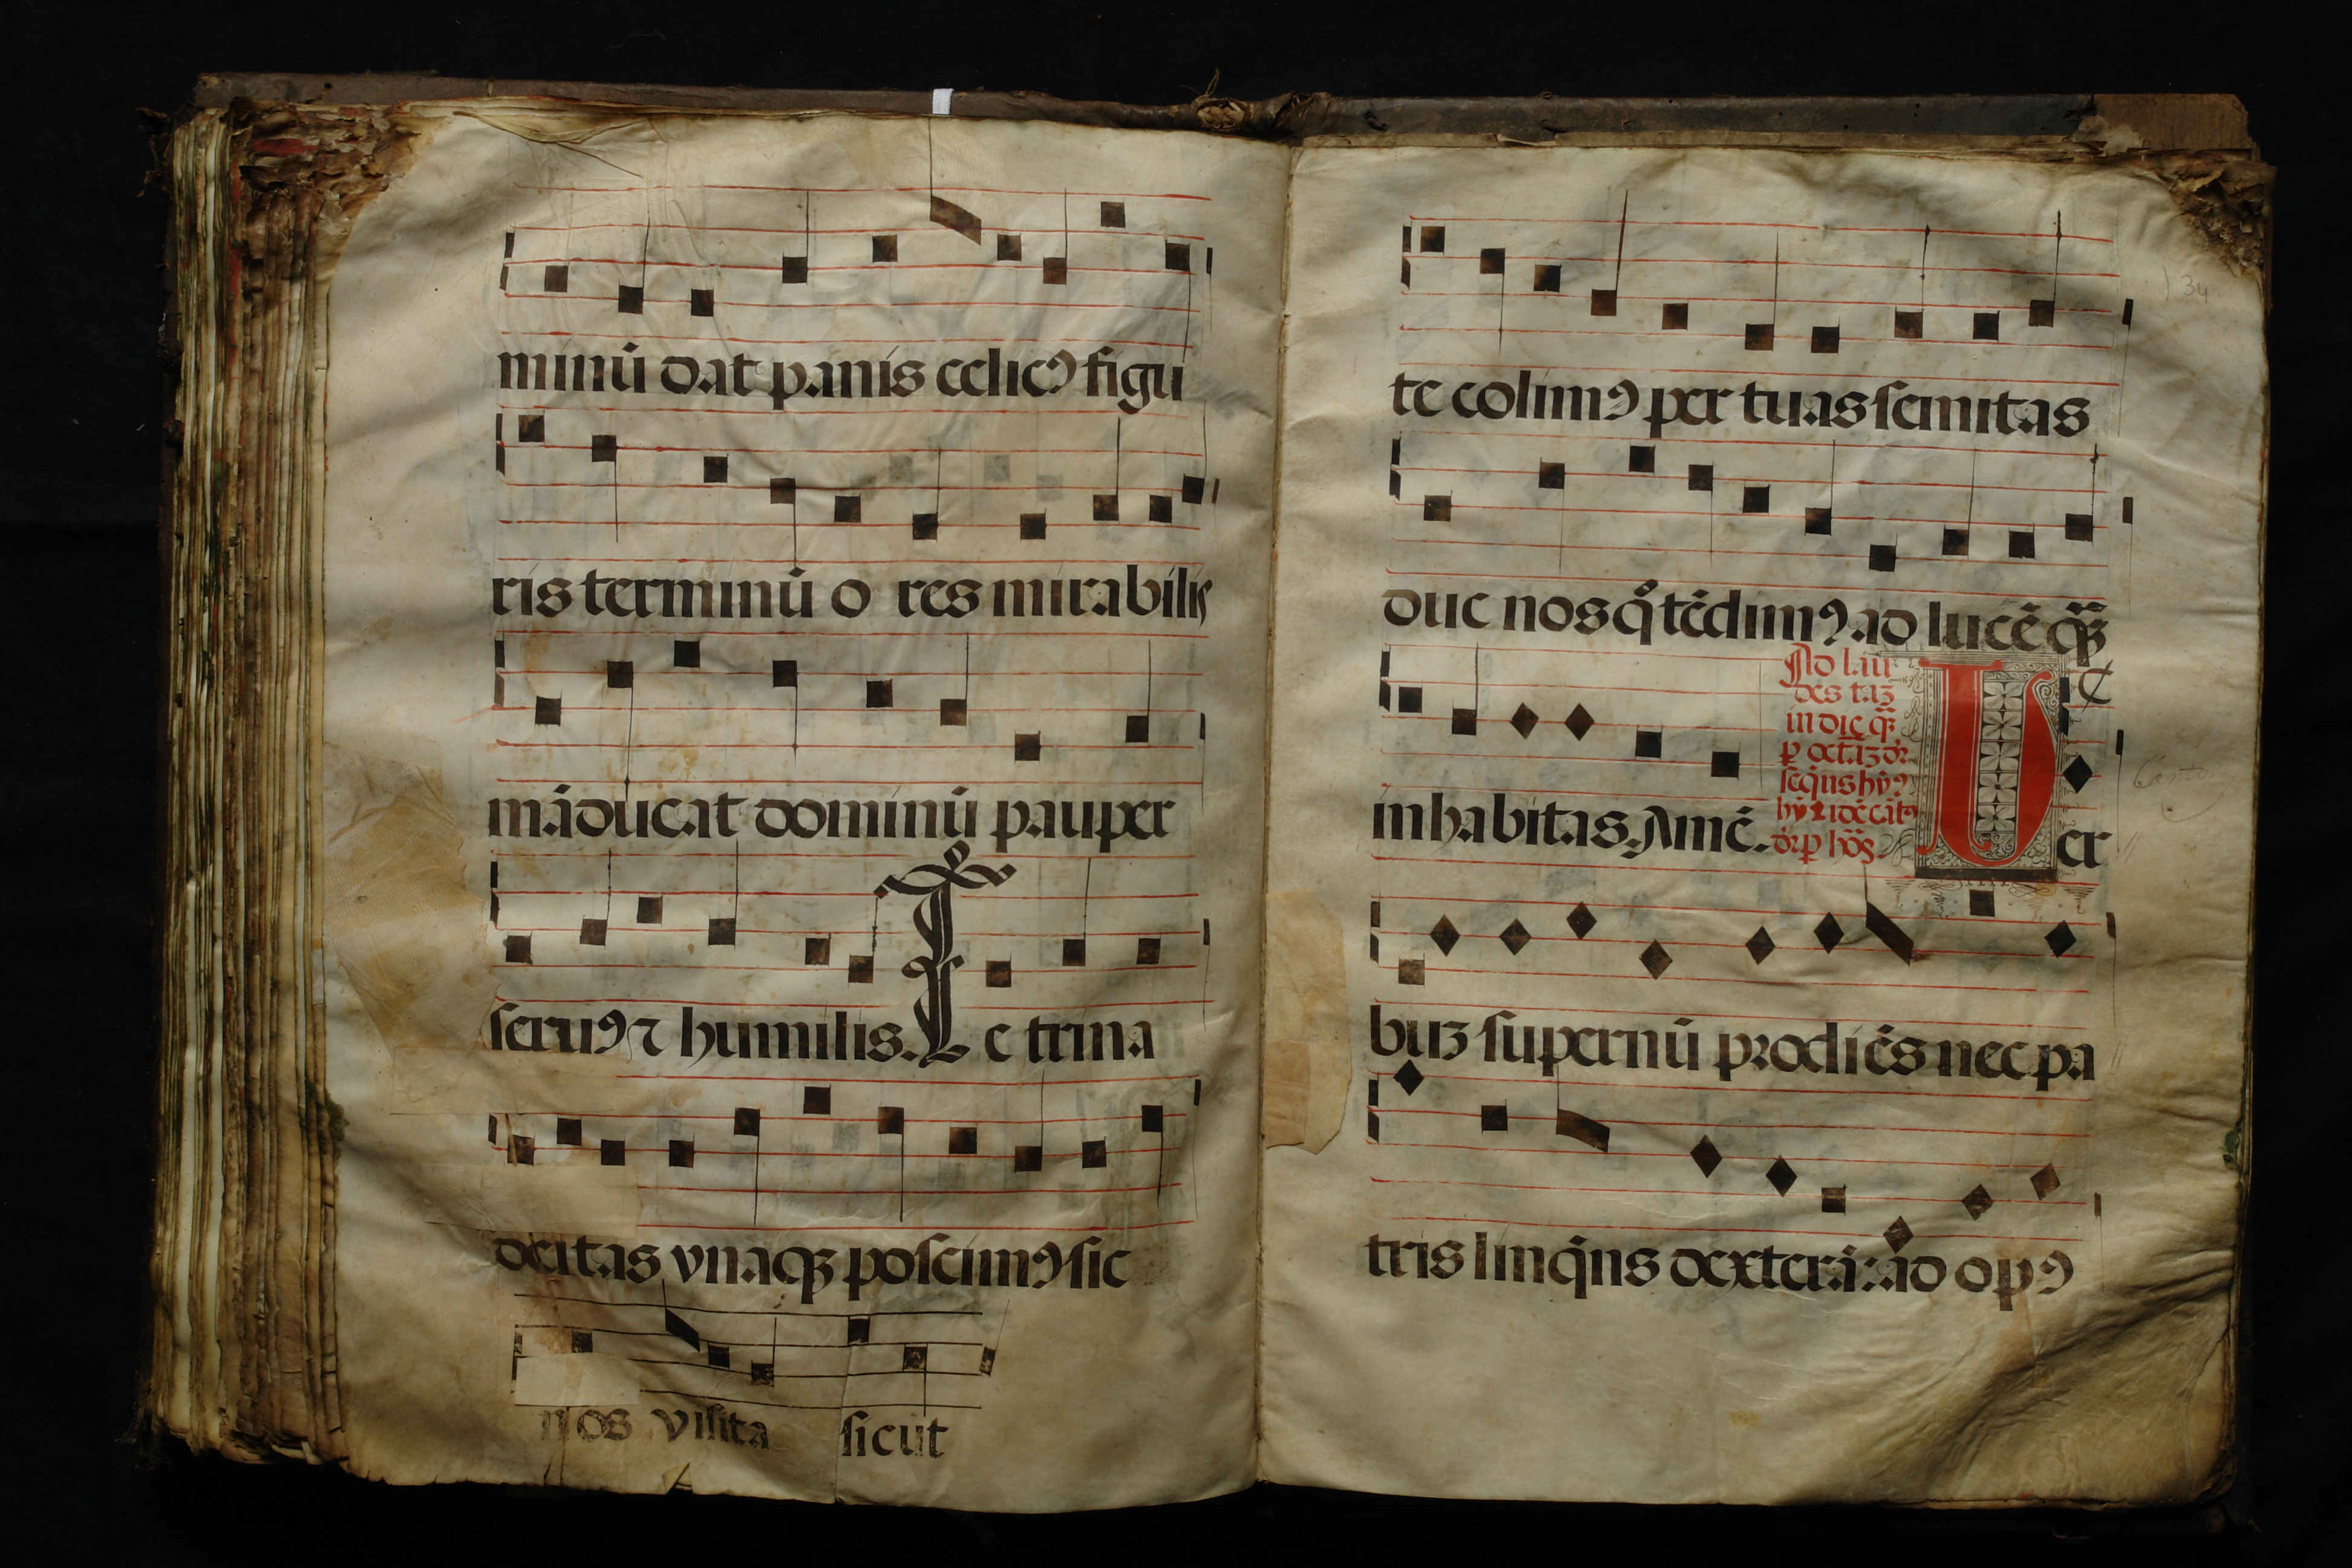 minū dat panis celicꝯ figu
ris terminū o res mirabilis
māducat dominū pauper
seruꝯ ⁊ humilis. Te trina
deitas vnaqꝫ poscimꝯ sic
nos visita sicut
134
te colimꝯ per tuas semitas
duc nos q̊ tēdimꝯ ad lucē quā
inhabitas. Amē.
Ad lau
des taꝫ
in die qꝫ
seqn̄s hȳꝯ
Uer
buꝫ supernū prodiēs nec pa
tris linqn̄s dexterā: ad opꝯ